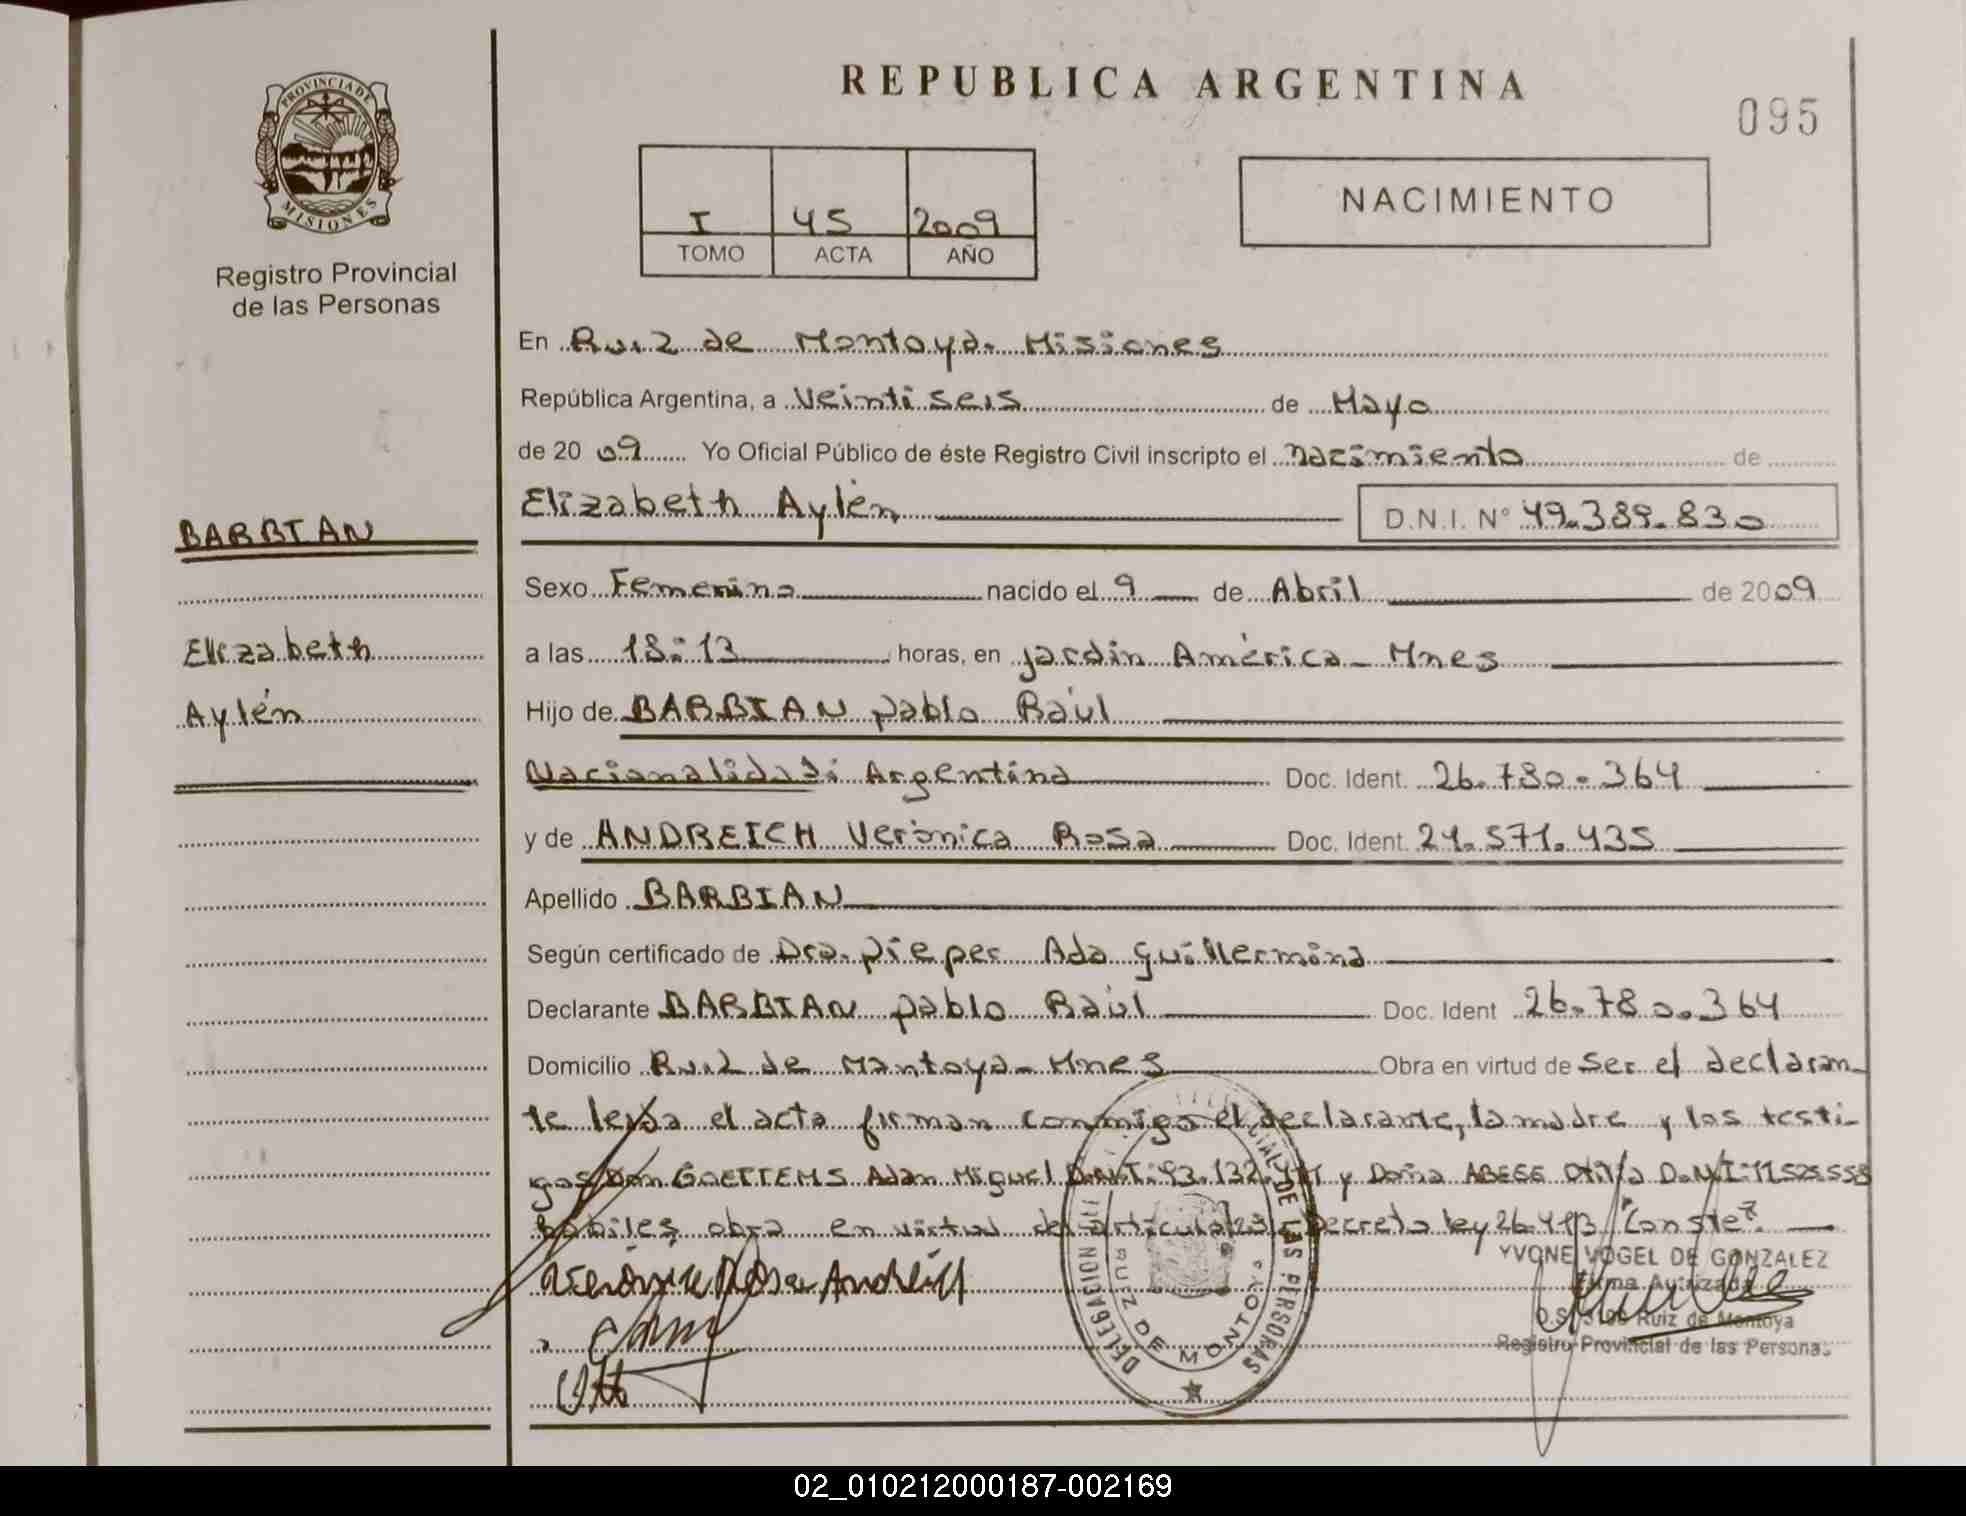 PROVINCIA DE
MISIONES
Registro Provincial
de las Personas
BARBIAN
Elizabeth
Aylén
REPUBLICA ARGENTINA
095
NACIMIENTO
I 45 2009
TOMO ACTA AÑO
En Ruiz de Montoya. Misiones
República Argentina, a Veintiseis de Mayo
de 2009 Yo Oficial Público de éste Registro Civil inscripto el nacimiento de
Elizabeth Aylén D.N.I. N° 49.389.830
Sexo Femenino nacido el 9 de Abril de 2009
a las 18:13 horas, en Jardín América - Mnes
Hijo de BARBIAN Pablo Raúl
Nacionalidad: Argentina Doc. Ident. 26.780.364
y de ANDREICH Verónica Rosa Doc. Ident. 24.571.435
Apellido BARBIAN
Según certificado de Dra. Pieper Ada Guillermina
Declarante BARBIAN Pablo Raúl Doc. Ident 26.780.364
Domicilio Ruiz de Montoya - Mnes Obra en virtud de Ser el declaran-
te leída el acta firman conmigo el declarante, la madre y los testi-
gos Don GOETTEMS Adan Miguel D.N.I: y Doña ABEGG Otilia D.N.I: 11.525.558
habiles obra en virtud del artículo Decreto ley Conste.
Verónica Rosa Andreich
DELEGACION PROVINCIAL DE LAS PERSONAS
RUIZ DE MONTOYA
YVONE VOGEL DE GONZALEZ
Firma Autrizada
Ruiz de Montoya
Registro Provincial de las Personas
02_010212000187-002169